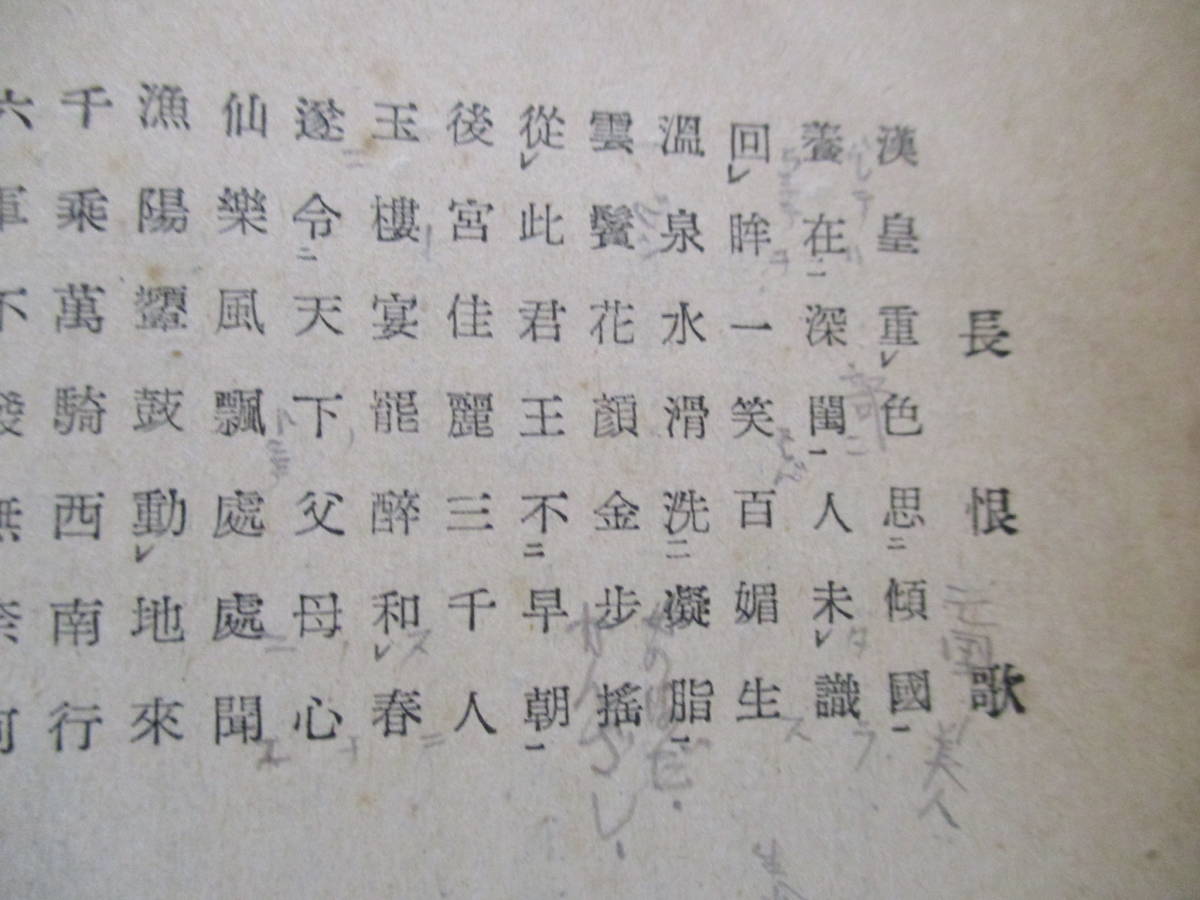 長恨歌
漢皇重レ色思二傾國一
養在二深閨一人未レ識
回レ眸一笑百媚生
溫泉水滑洗二凝脂一
雲鬢花顏金步搖
從レ此君王不二早朝一
後宮佳麗三千人
玉樓宴罷醉和レ春
遂令二天下父母心
仙樂風飄處處聞
漁陽鼙鼓動レ地來
千乘萬騎西南行
六軍不發無奈何
美人
かんざし